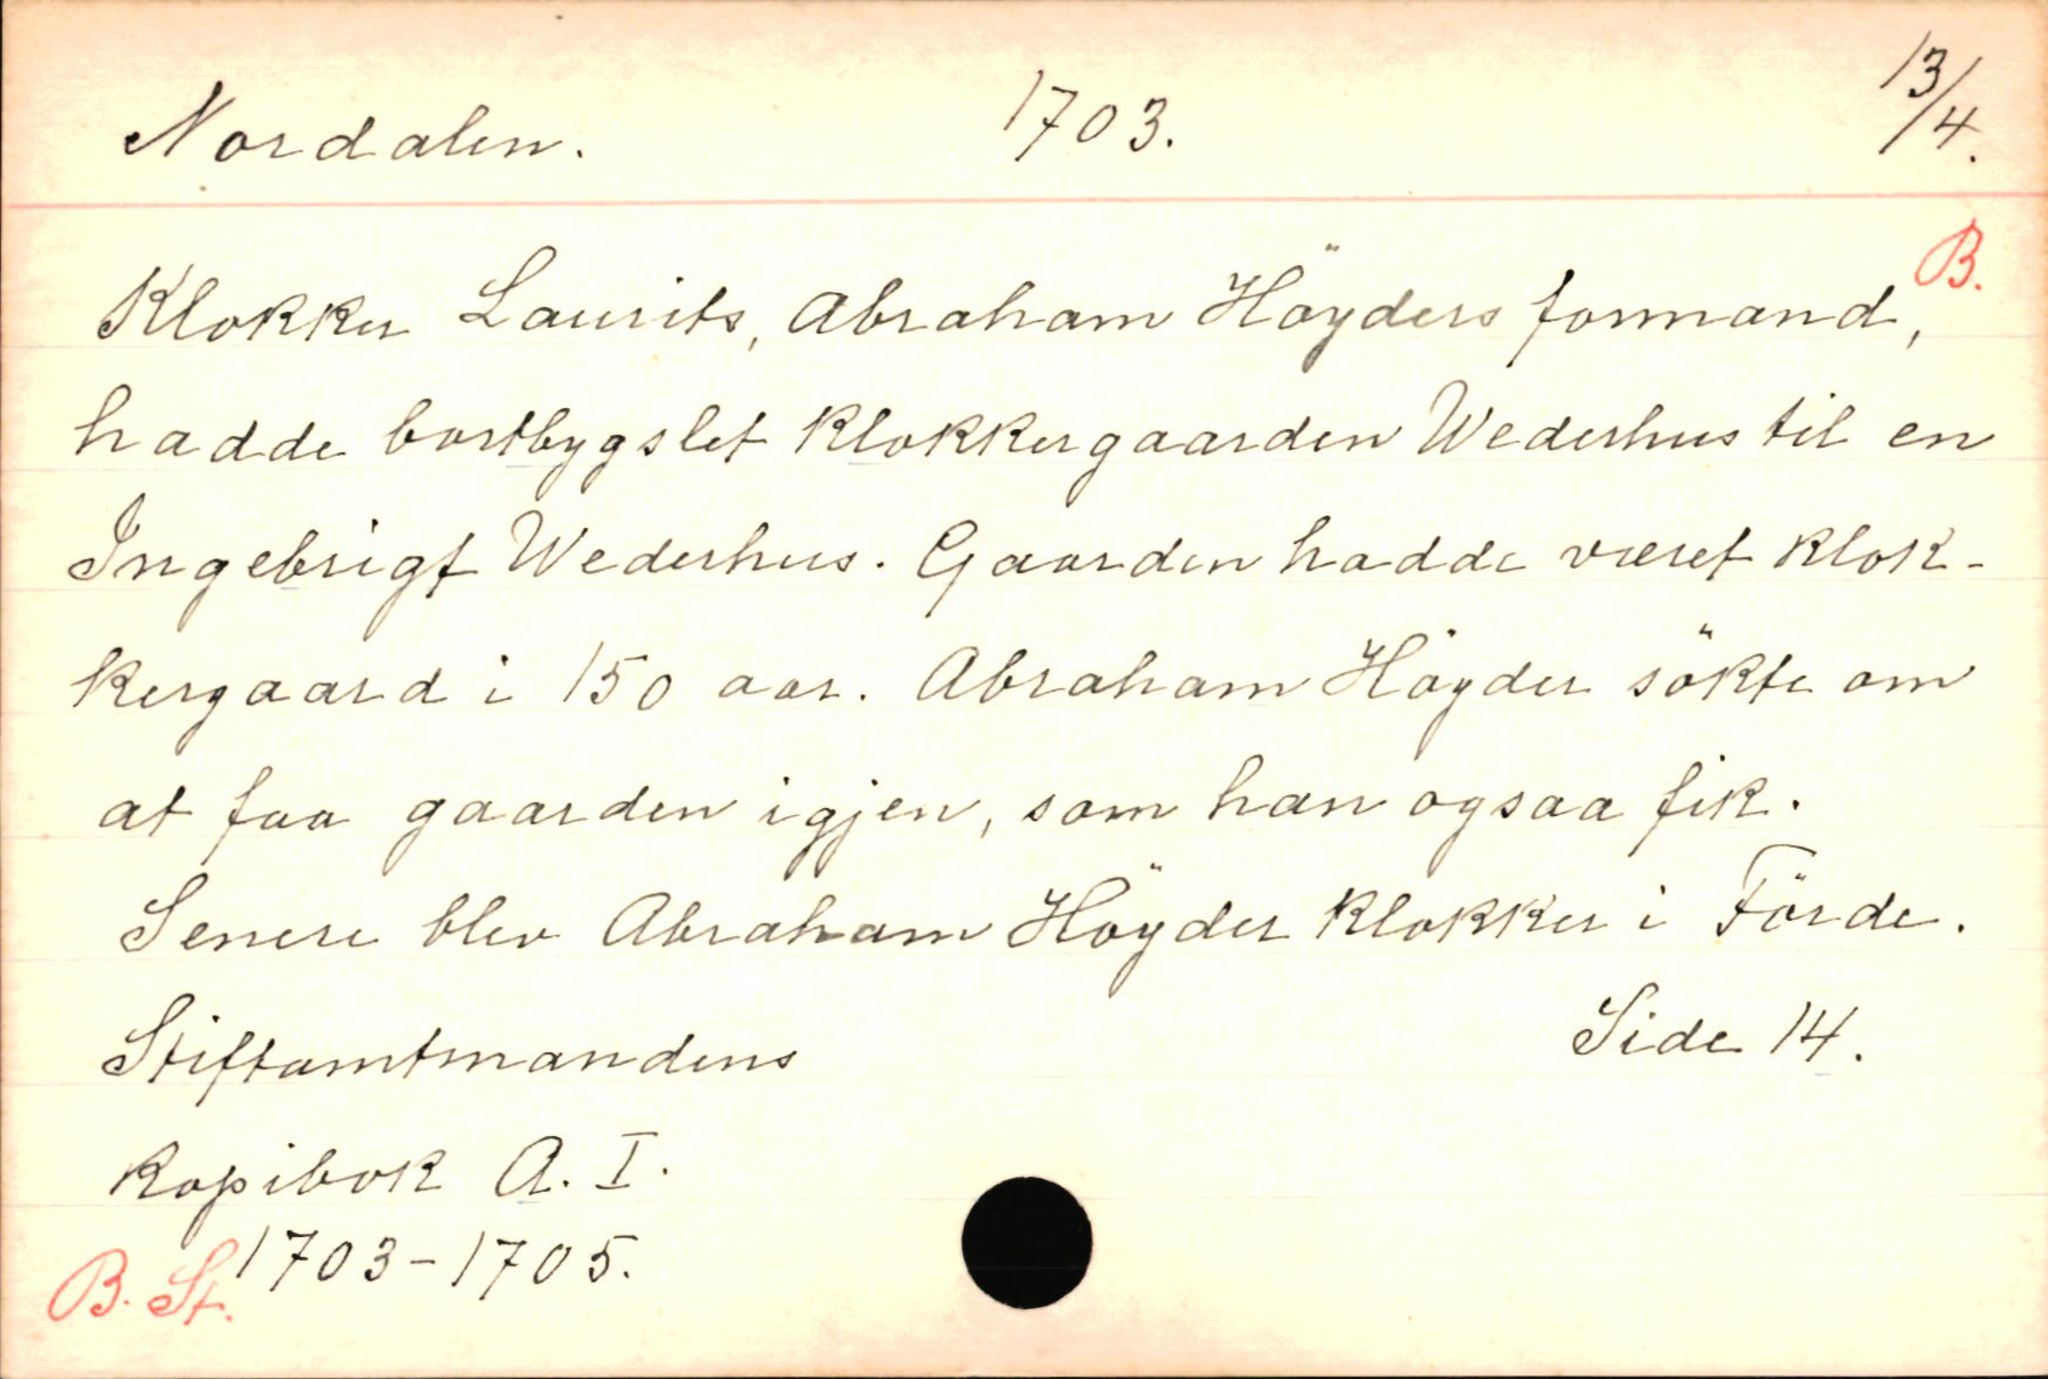 Nordalen. 1703. 13/4.
B.
Klokker Laurits, Abraham Höyders formand,
hadde bortbygslet klokkergaarden Wederhus til en
Ingebrigt Wederhus. Gaarden hadde været klok-
kergaard i 150 aar. Abraham Höyder sökte om
at faa gaarden igjen, som han ogsaa fik.
Senere blev Abraham Höyder klokker i Förde.
Stiftamtmandens Side 14.
kopibok A. I.
1703-1705.
B. St.